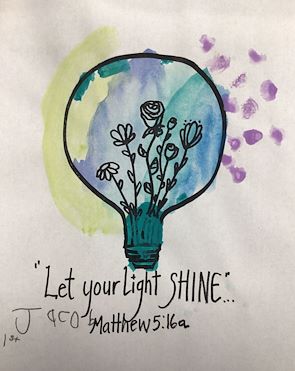 "Let your Light SHINE"...
Jacob
Matthew 5:16a
1st